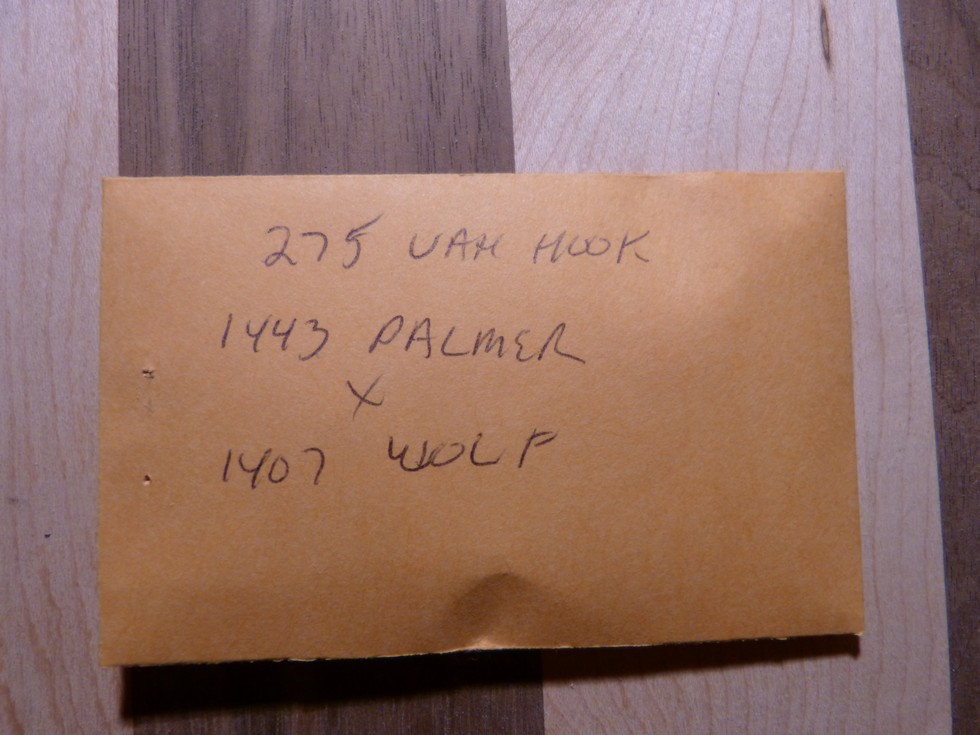 275 VAN HOOK
1443 PALMER
X
1407 WOLF